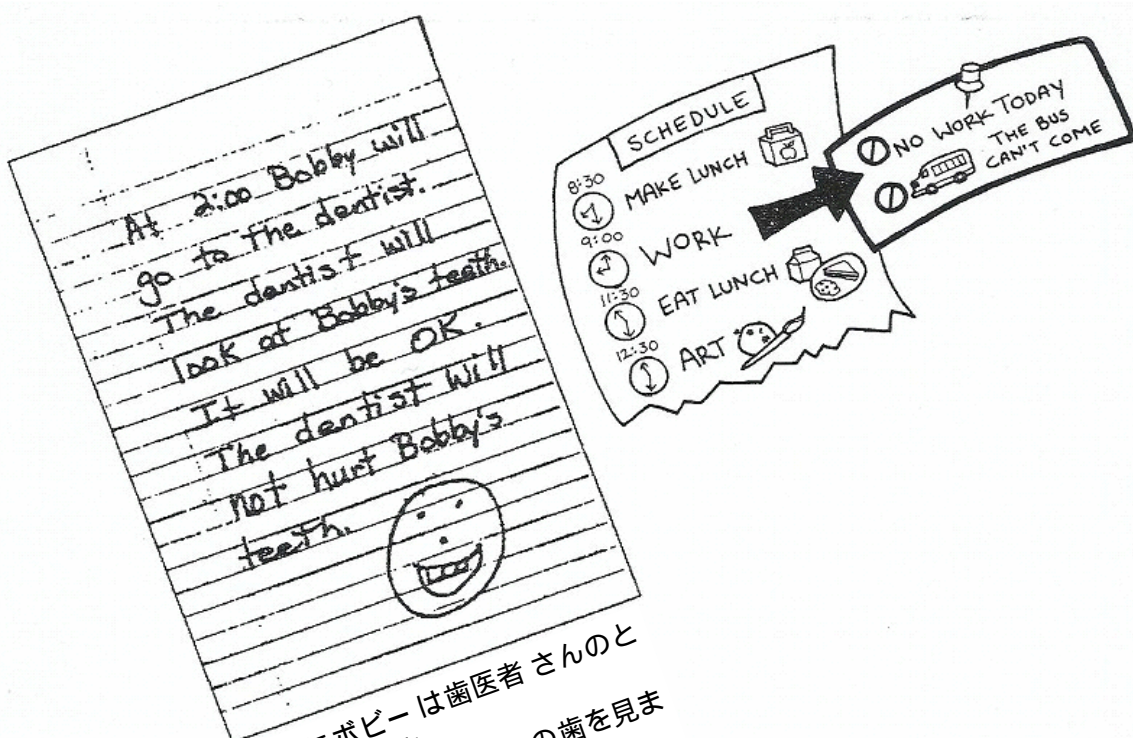 At 2:00 Bobby will
go to the dentist.
The dentist will
look at Bobby's teeth.
It will be OK.
The dentist will
not hurt Bobby's
teeth.
SCHEDULE
8:30
MAKE LUNCH
9:00
WORK
11:30
EAT LUNCH
12:30
ART
NO WORK TODAY
THE BUS
CAN'T COME
ボビー は歯医者 さんのと
の歯を見ま